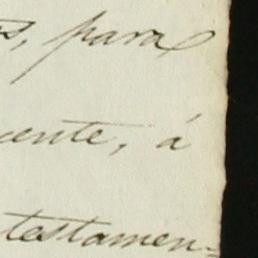 s, para
cente, á
testamen-